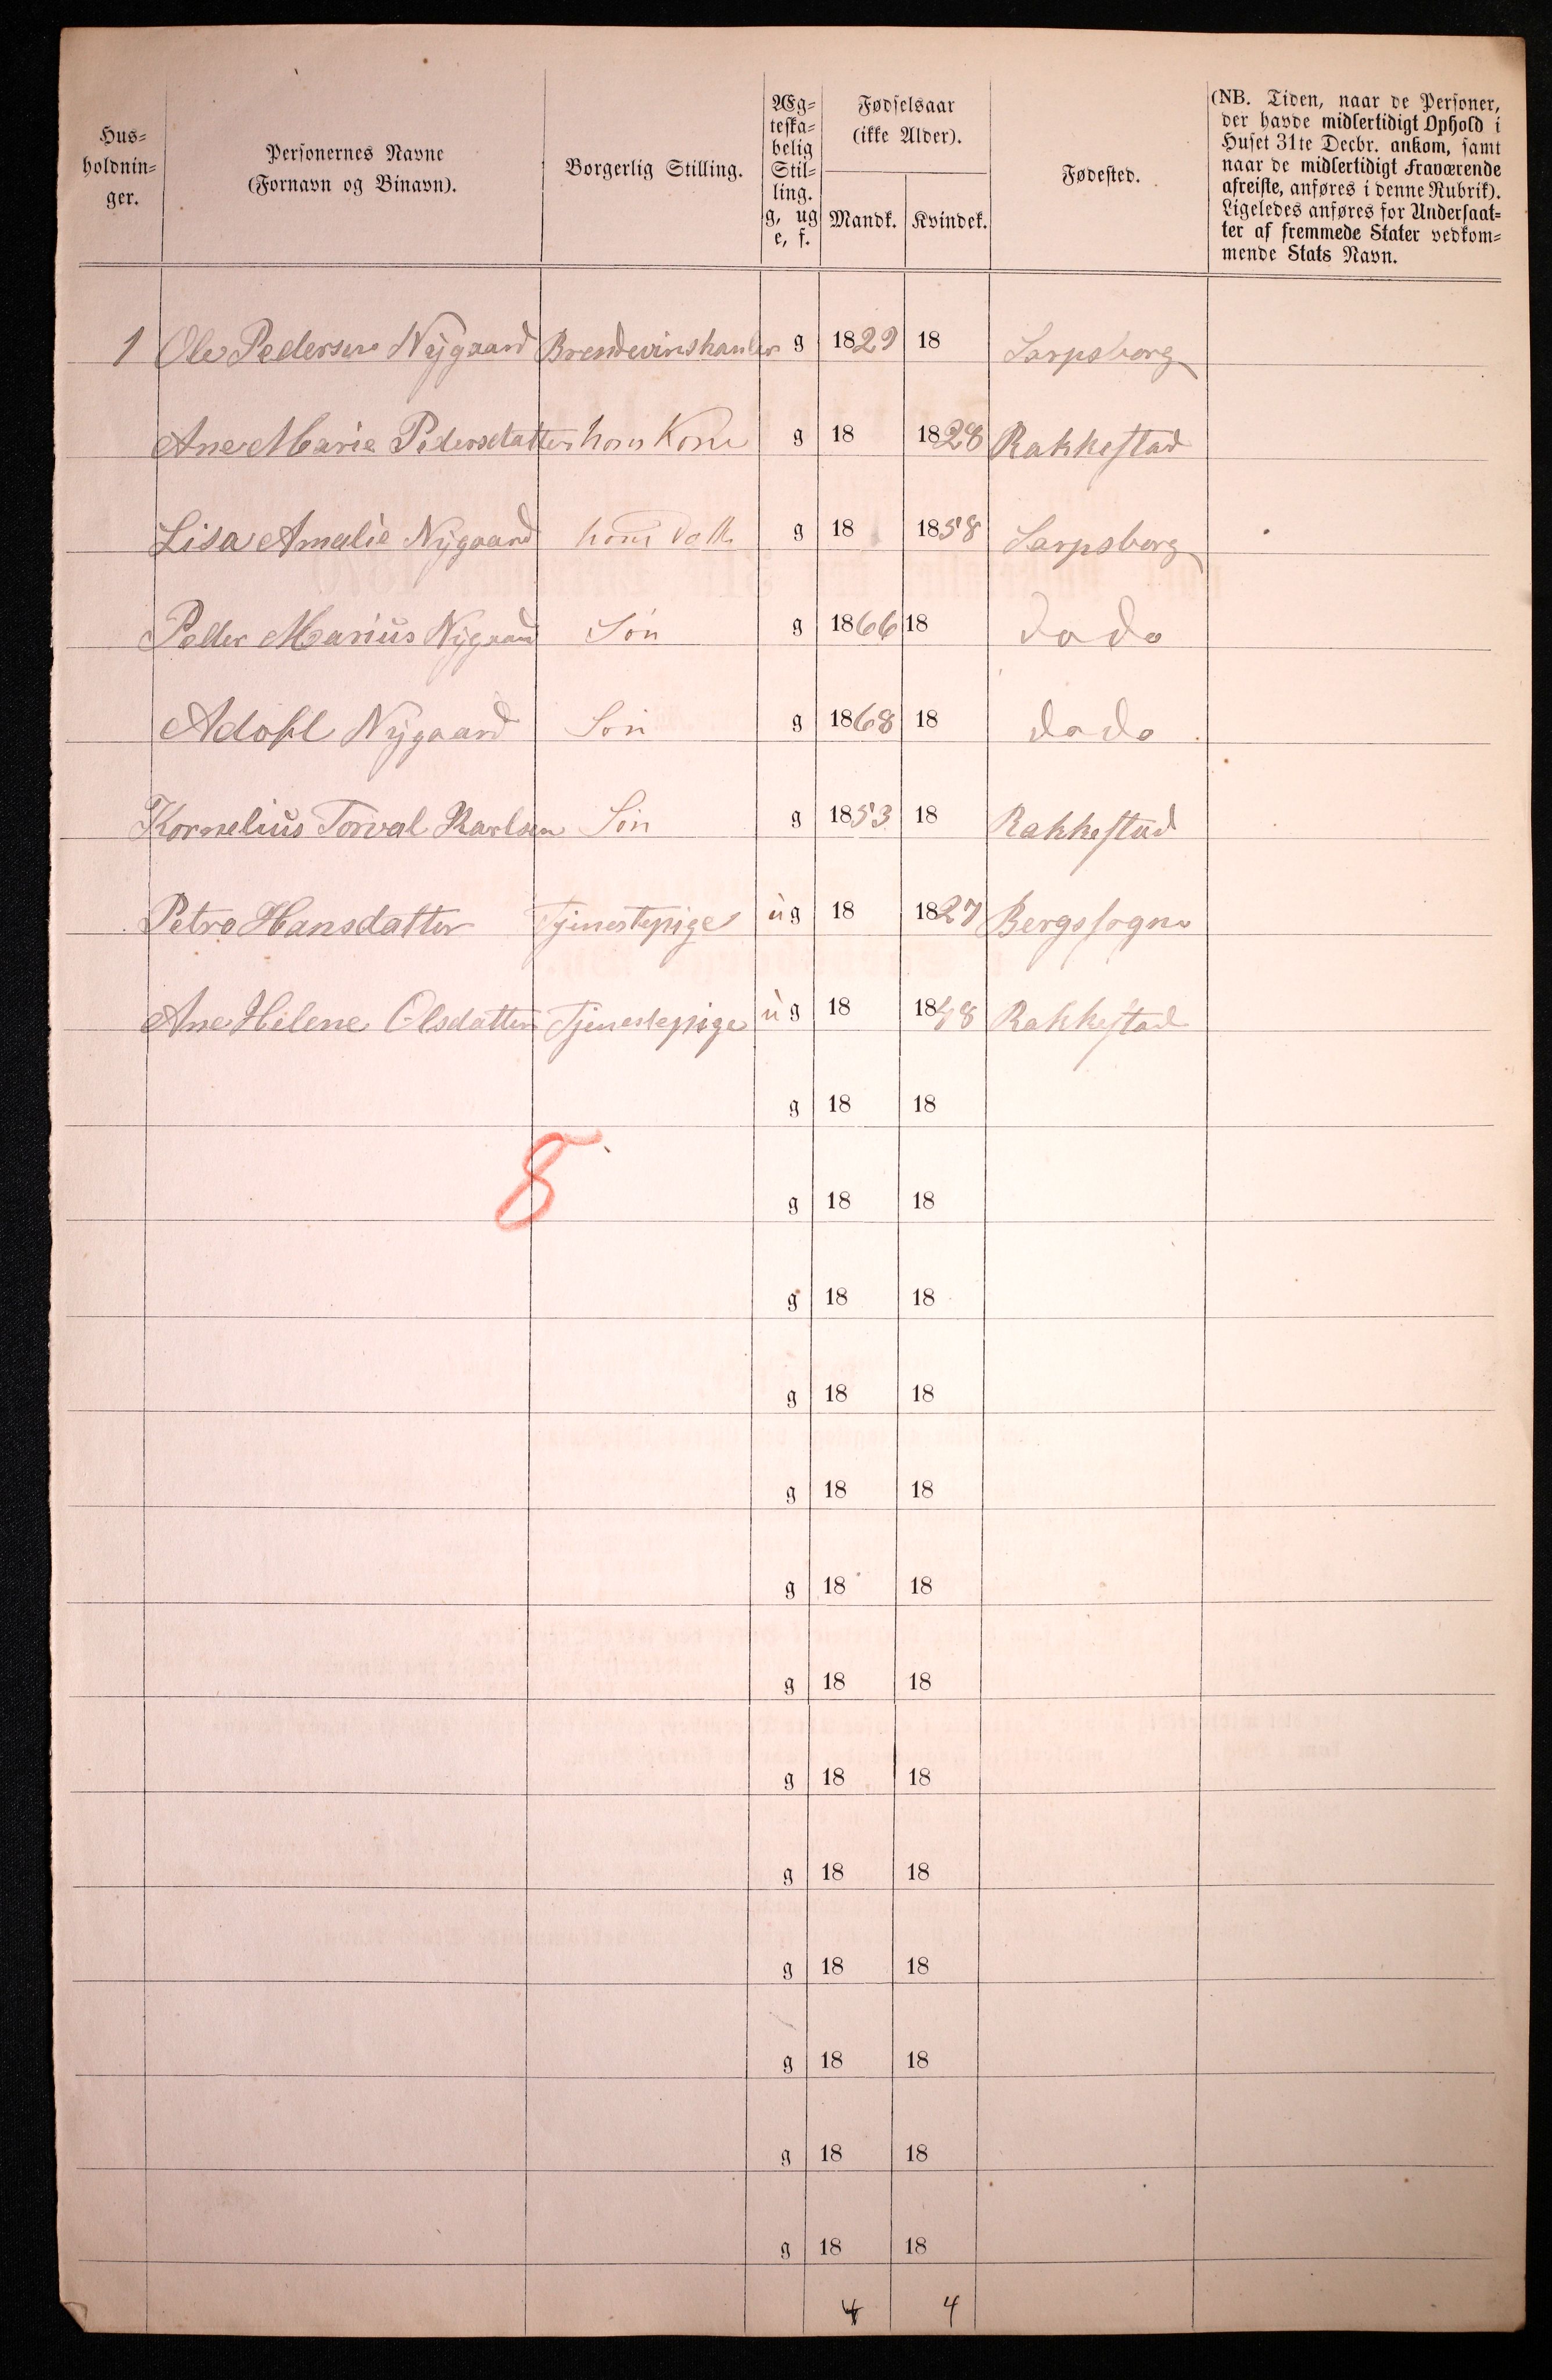 Hus-
holdnin-
ger.
Personernes Navne
(Fornavn og Binavn).
Borgerlig Stilling.
Æg-
teska-
belig
Stil-
ling.
g, ug
e, f.
Fødselsaar
(ikke Alder).
Mandk. Kvindek.
Fødested.
(NB. Tiden, naar de Personer,
der havde midlertidigt Ophold i
Huset 31te Decbr. ankom, samt
naar de midlertidigt Fraværende
afreiste, anføres i denne Rubrik).
Ligeledes anføres for Undersaat-
ter af fremmede Stater vedkom-
mende Stats Navn.
1 Ole Pedersen Nÿgaard Brendevinshanler g 1829 18 Sarpsborg
Ane Marie Pedersdatter hans Kone g 18 1828 Rakkestad
Lisa Amalie Nÿgaard hans Datt. g 18 1858 Sarpsborg
Peder Marius Nÿgaard Sön g 1866 18 do do
Adohl Nÿgaard Sön g 1868 18 do do
Kornelius Torval Karlsen Sön g 1853 18 Rakkestad
Petra Hansdatter Tjenestepige ug 18 1827 Bergssogn
Ane Helene Olsdatter Tjenestepige ug 18 1848 Rakkestad
g 18 18
8 g 18 18
g 18 18
g 18 18
g 18 18
g 18 18
g 18 18
g 18 18
g 18 18
g 18 18
g 18 18
g 18 18
g 18 18
4 4